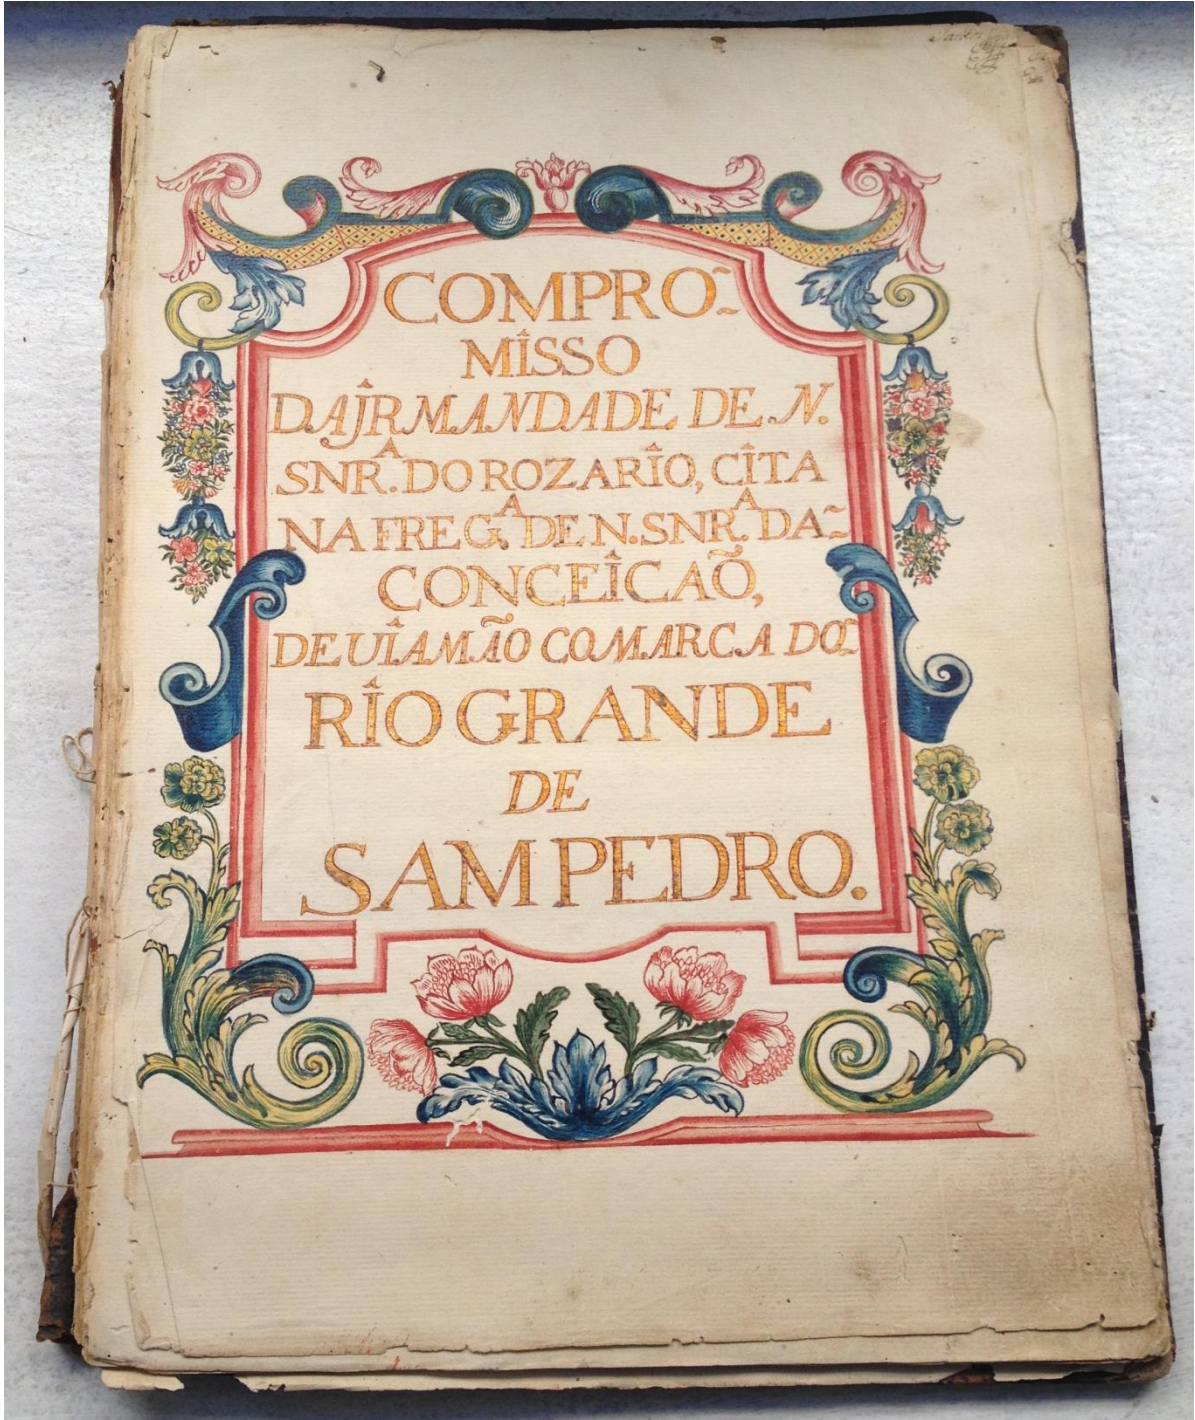 COMPRO~
MÎSSO
DA JRMANDADE DE N.
SNR.ᴬ DO ROZARÎO, CÎTA
NA FREG.ᴬ DE N. SNR.ᴬ DA~
CONCEÎCAÕ,
DE UÎAMÃO COMARCA DO~
RÎO GRANDE
DE
SAM PEDRO.